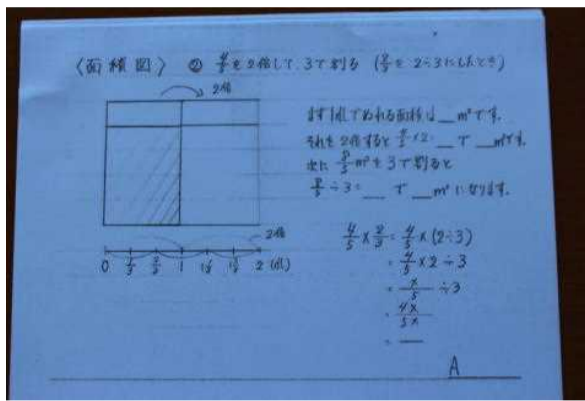 〈面積図〉 ② 4/5を2倍して、3で割る (2/3を2÷3にしたとき)
2倍
まず1dLでぬれる面積は__m²です。
それを2倍すると 4/5×2=__ で __m²です。
次に 8/5m²を3で割ると
8/5÷3=__ で __m²になります。
2倍
0 1/3 2/3 1 1 1/3 1 2/3 2 (dL)
4/5×2/3=4/5×(2÷3)
=4/5×2÷3
=×/5÷3
=4×/5×
=__
A